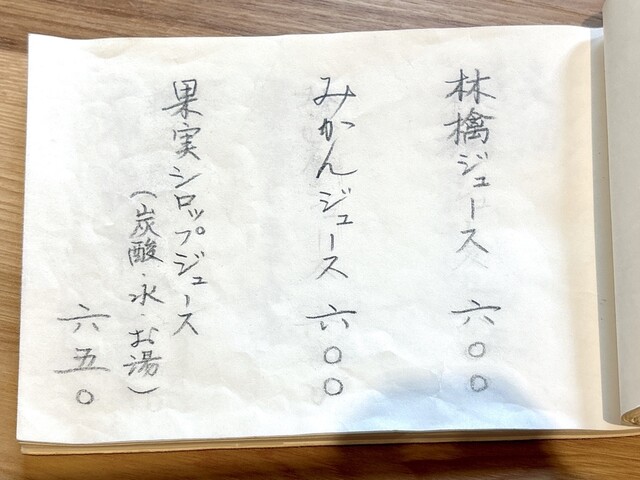 林檎ジュース 六〇〇
みかんジュース 六〇〇
果実シロップジュース
(炭酸・水・お湯)
六五〇